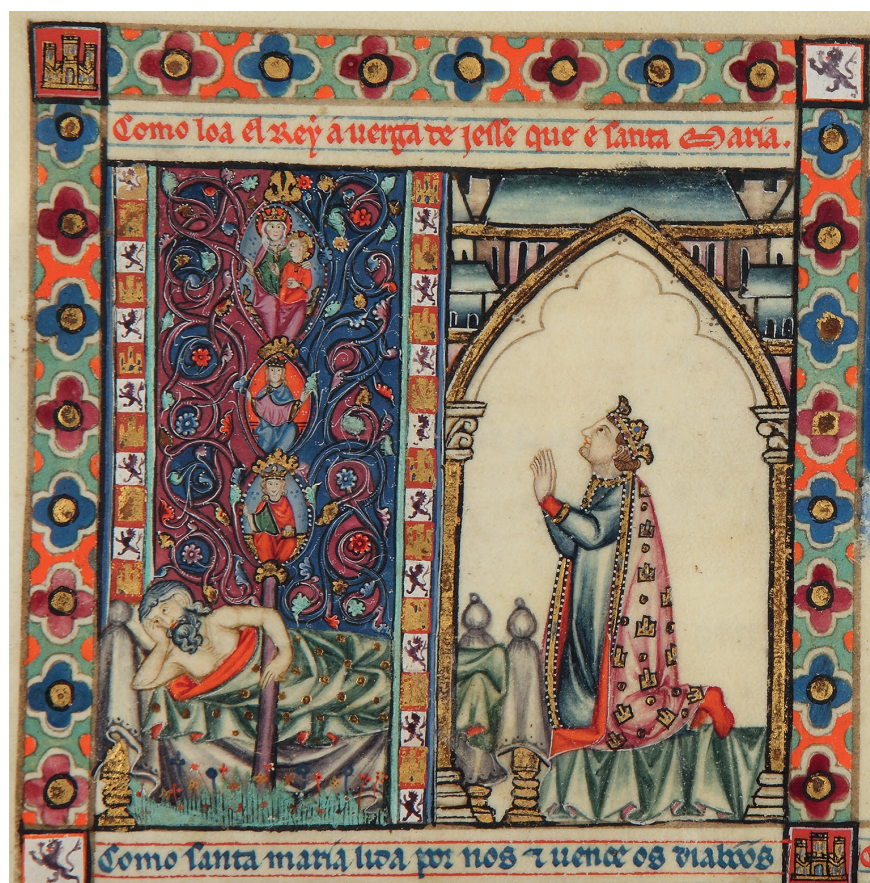 Como loa el Rey a uerga de jesse que é santa Maria.
Como santa maria lida por nos ⁊ uence os diaboos